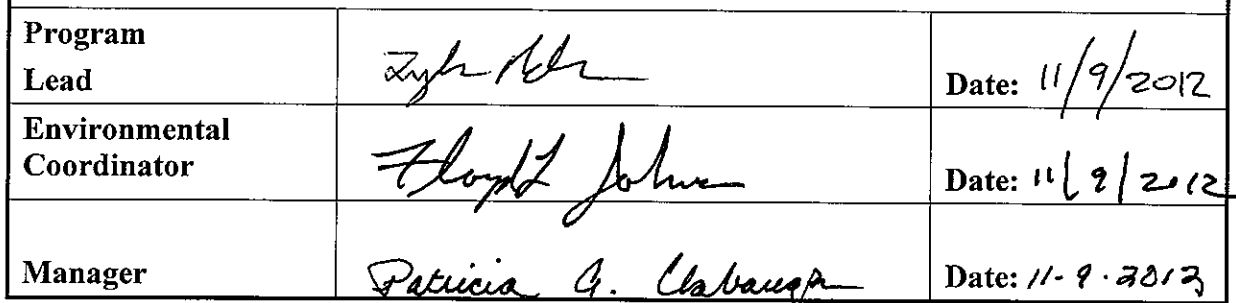 Program
Lead
Date: 11/9/2012
Environmental
Coordinator
Floyd L Johns
Date: 11/9/2012
Manager
Patricia G. Clabaugh
Date: 11-9-2012